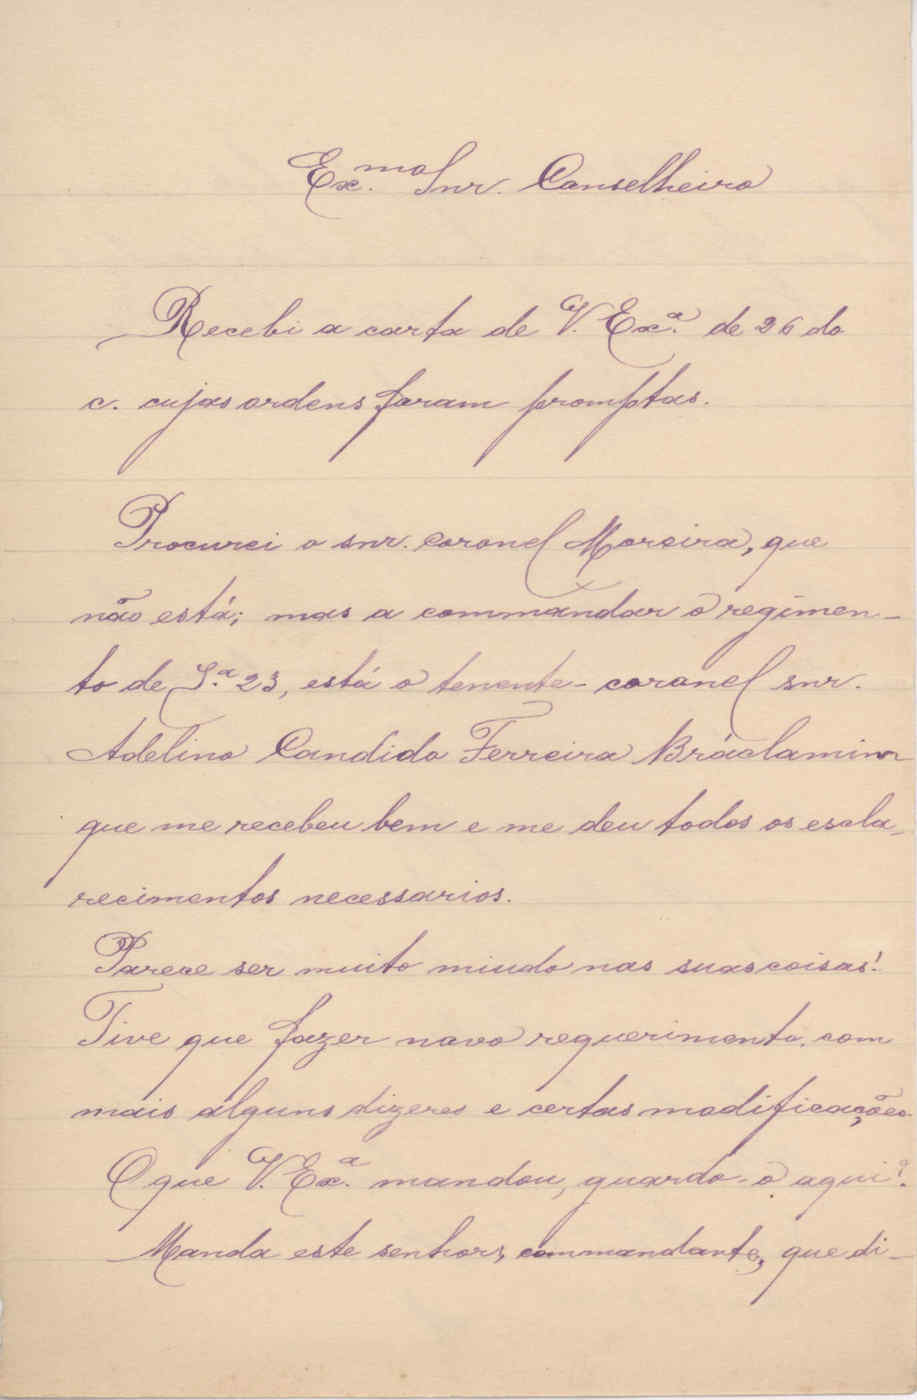 Ex.mo Snr. Conselheiro
Recebi a carta de V. Exª. de 26 do
c. cujas ordens foram promptas.
Procurei o snr. coronel Moreira, que
não está; mas a commandar o regimen-
to de J.ª 23, está o tenente-coronel snr.
Adelino Candido Ferreira Bráclamim
que me recebeu bem e me deu todos os escla-
recimentos necessarios.
Parece ser muito miudo nas suas coisas!
Tive que fazer novo requerimento, com
mais alguns dizeres e certas modificações.
O que V. Exª. mandou, guardo-o aqui.
Manda este senhor, commandante, que di-